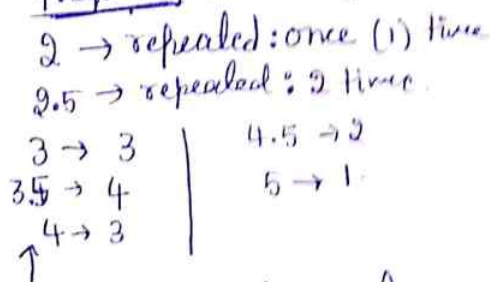 2 → repeated : once (1) time
2.5 → repeated : 2 times
3 → 3
3.5 → 4
4 → 3
4.5 → 2
5 → 1